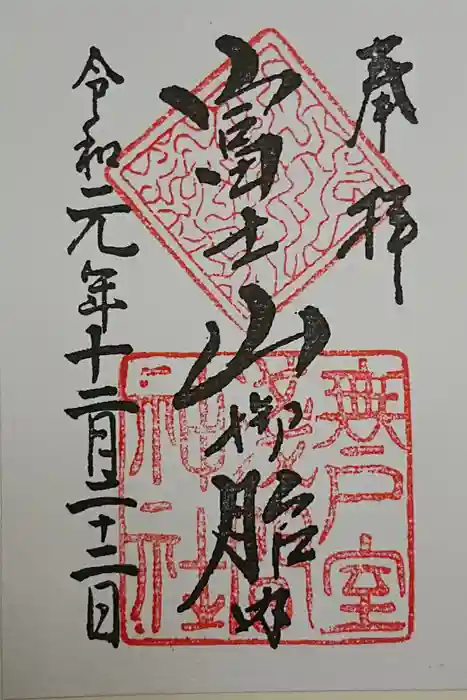 奉拝
富士山御胎内
令和元年十二月二十二日
無戸室
浅間
神社